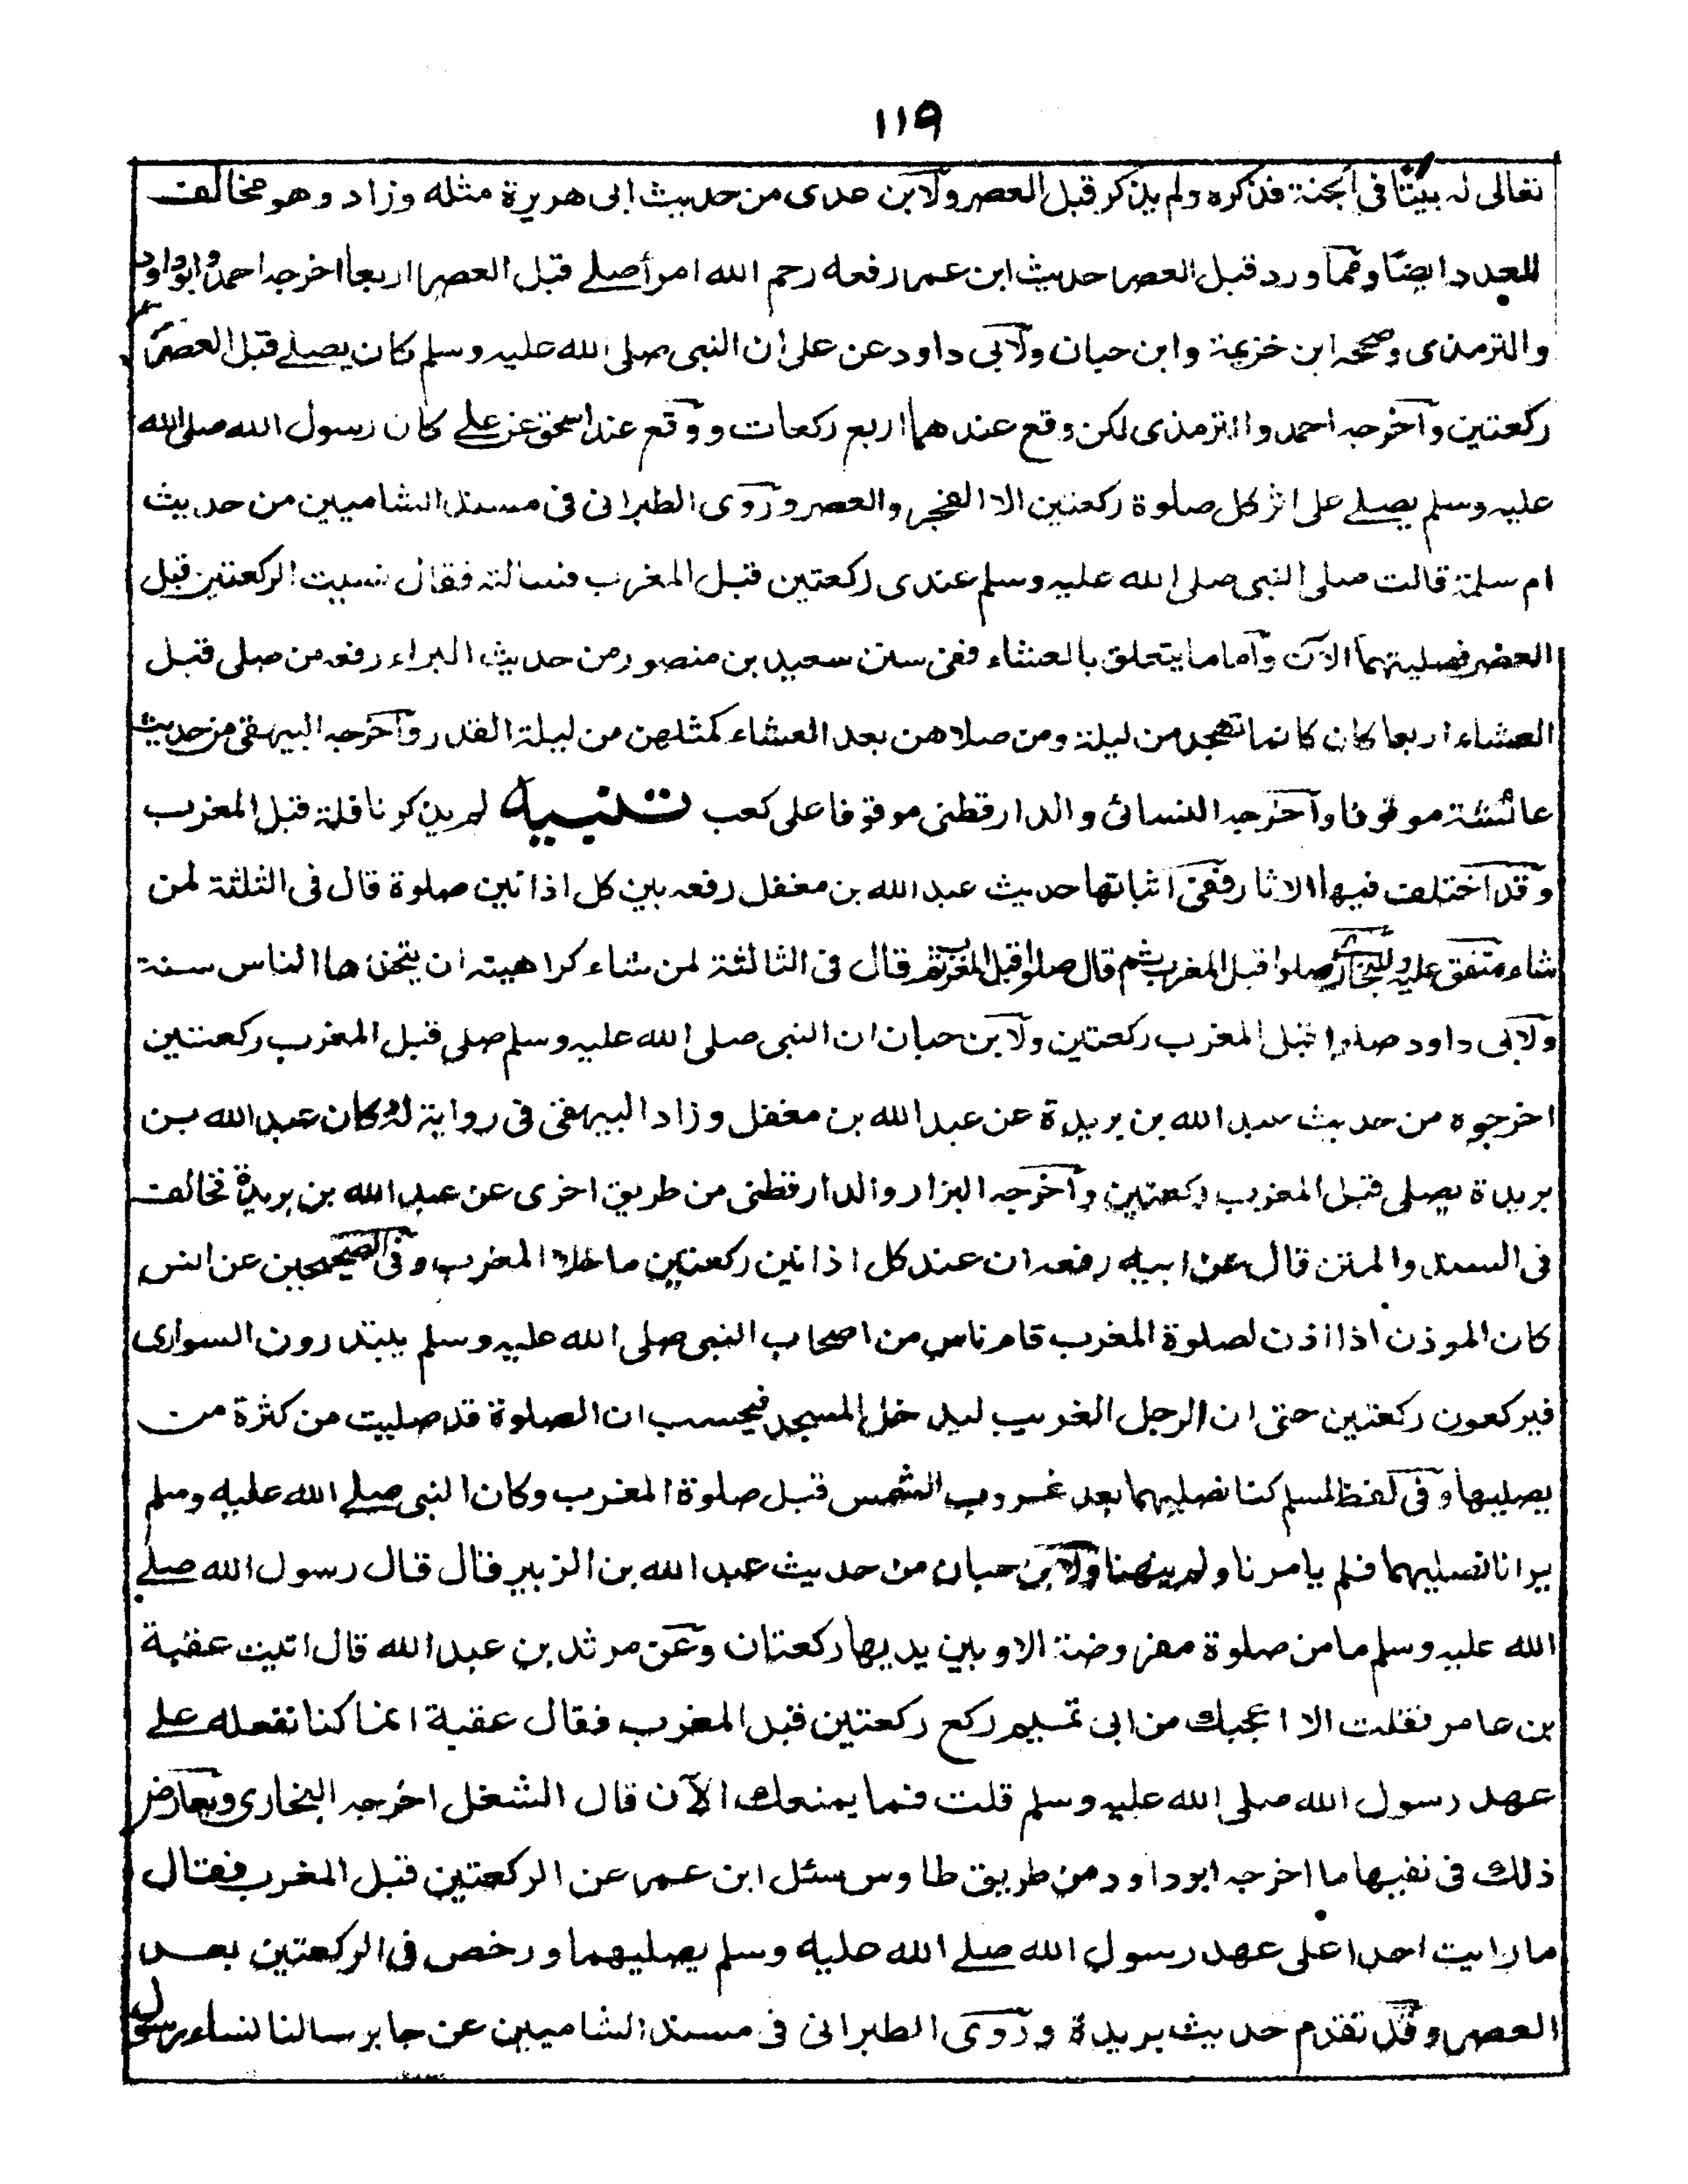 ١١٩
تعالى له بيتا فى الجنة فذكره ولم يذكر قبل العصر ولابن عدى من حديث ابى هريرة مثله وزاد وهو مخالف
للعدد ايضا ومما ورد قبل العصر حديث ابن عمر رفعه رحم الله امرأ صلے قبل العصر اربعا اخرجه احمد وابو داود
والترمذى وصححه ابن خزيمة وابن حبان ولابى داود عن على ان النبى صلى الله عليه وسلم كان يصلے قبل العصر
ركعتين وآخرجه احمد والترمذى لكن وقع عندهما اربع ركعات ووقع عند اسحق عن علے كان رسول الله صلى الله
عليه وسلم يصلے على اثر كل صلوة ركعتين الا الفجر والعصر وروى الطبرانى فى مسند الشاميين من حديث
ام سلمة قالت صلى النبى صلى الله عليه وسلم عندى ركعتين قبل المغرب فسالته فقال نسيت الركعتين قبل
العصر فصليتهما الآن وآما ما يتعلق بالعشاء ففى سنن سعيد بن منصور من حديث البراء رفعه من صلى قبل
العشاء اربعا كان كانما تهجد من ليلة ومن صلاهن بعد العشاء كمثلهن من ليلة القدر وآخرجه البيهقى من حديث
عائشة موقوفا وآخرجه النسائى والدارقطنى موقوفا على كعب تنبيه لم يذكر نافلة قبل المغرب
وقد اختلف فيها الاثار ففى اثباتها حديث عبد الله بن مغفل رفعه بين كل اذانين صلوة قال فى الثلثة لمن
شاء متفق عليه وللبخارى صلوا قبل المغرب ثم قال صلوا قبل المغرب ثم قال فى الثالثة لمن شاء كراهية ان يتخذها الناس سنة
ولابى داود صلوا قبل المغرب ركعتين ولابن حبان ان النبى صلى الله عليه وسلم صلى قبل المغرب ركعتين
اخرجوه من حديث عبد الله بن بريدة عن عبد الله بن مغفل وزاد البيهقى فى رواية له وكان عبد الله بن
بريدة يصلى قبل المغرب ركعتين وآخرجه البزار والدارقطنى من طريق اخرى عن عبد الله بن بريدة فخالف
فى السند والمتن قال عن ابيه رفعه ان عند كل اذانين ركعتين ما خلا المغرب وفى الصحيحين عن انس
كان الموذن اذا اذن لصلوة المغرب قام ناس من اصحاب النبى صلى الله عليه وسلم يبتدرون السوارى
فيركعون ركعتين حتى ان الرجل الغريب ليدخل المسجد فيحسب ان الصلوة قد صليت من كثرة من
يصليها وفى لفظ لمسلم كنا نصليهما بعد غروب الشمس قبل صلوة المغرب وكان النبى صلے الله عليه وسلم
يرانا نصليهما فلم يامرنا ولم ينهنا ولابن حبان من حديث عبد الله بن الزبير قال قال رسول الله صلے
الله عليه وسلم ما من صلوة مفروضة الا وبين يديها ركعتان وعن مرثد بن عبد الله قال اتيت عقبة
بن عامر فقلت الا اعجبك من ابى تميم ركع ركعتين قبل المغرب فقال عقبة انما كنا نفعله علے
عهد رسول الله صلى الله عليه وسلم قلت فما يمنعك الآن قال الشغل اخرجه البخارى ويعارض
ذلك فى نفيها ما اخرجه ابو داود من طريق طاوس سئل ابن عمر عن الركعتين قبل المغرب فقال
ما رايت احدا على عهد رسول الله صلے الله عليه وسلم يصليهما ورخص فى الركعتين بعد
العصر وقد تقدم حديث بريدة وروى الطبرانى فى مسند الشاميين عن جابر سالنا نساء رسول